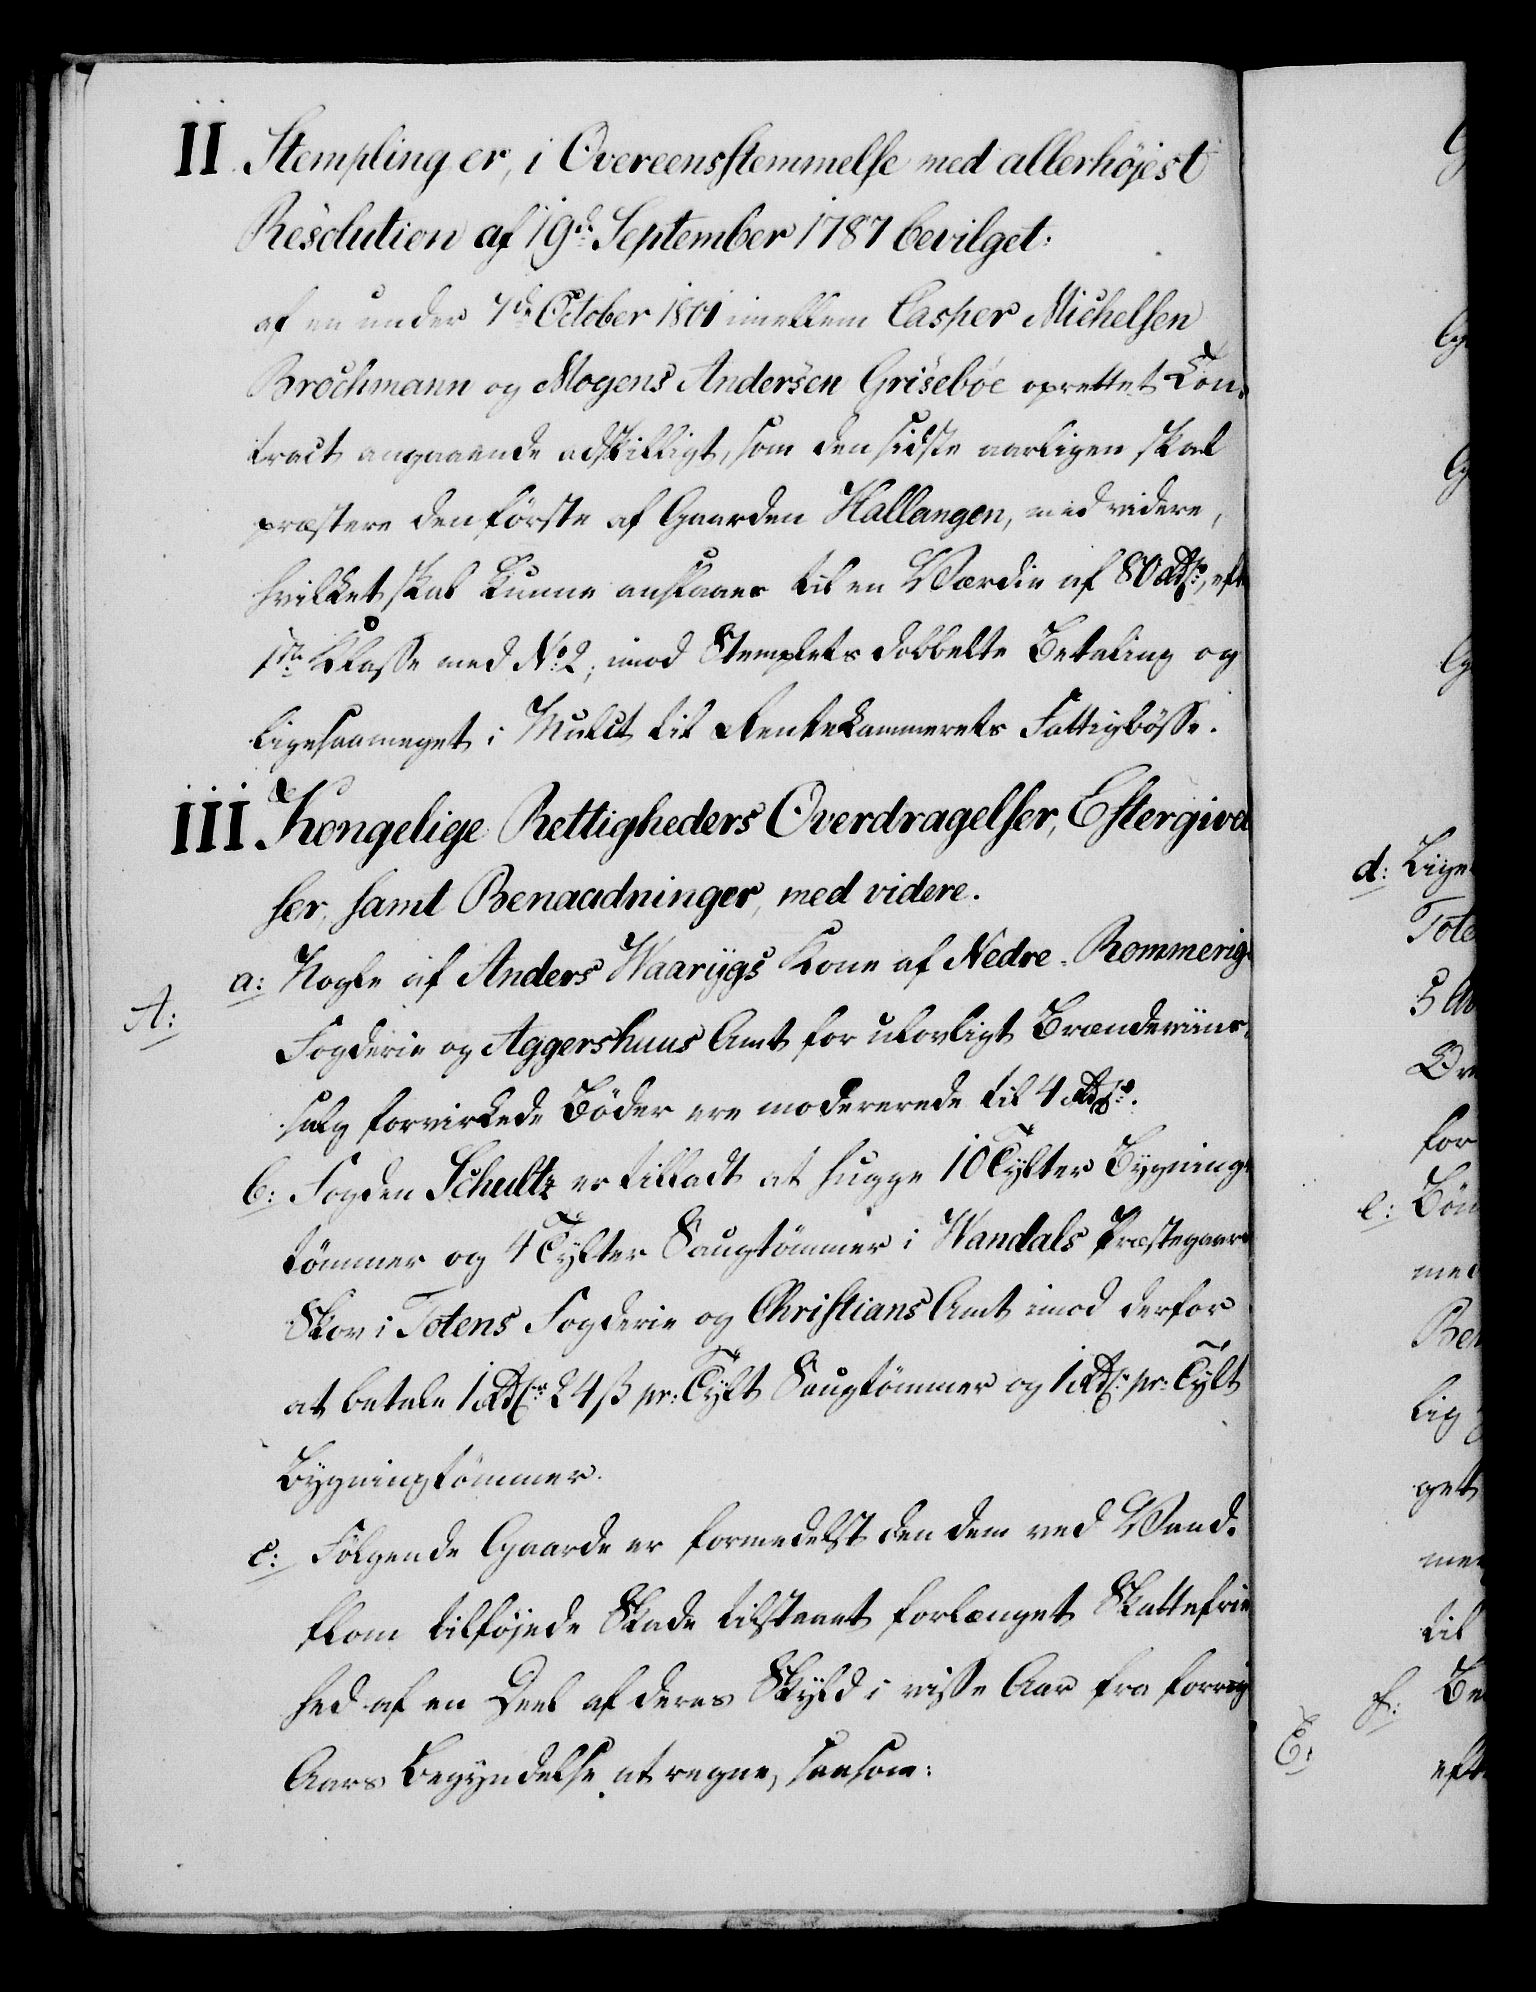 II. Stempling er, i Overeensstemmelse med allerhøjest
Resolution af 19de September 1787 bevilget:
af en under 7de October 1801 imellem Casper Michelsen
Brochmann og Mogens Andersen Grisebøe oprettet Con-
tract angaaende adskilligt, som den sidste aarligen skal
præstere den første af Gaarden Hallangen, med videre,
hvilket skal kunne anslaaes til en Værdie af 80 Rdlr, eft
1ste Klasse med No 2, imod Stemplets dobbelte Betaling og
ligesaameget i Mulct til Rentekammerets Fattigbøsse.
III. Kongelige Rettigheders Overdragelser, Eftergivel
ser, samt Benaadninger, med videre.
a: Nogle af Anders Waariigs Kone af Nedre-Rommerig
A:
Fogderie og Aggershuus Amt for ulovligt Brændeviins-
salg forvirkede Bøder ere modererede til 4 Rdlr.
b: Fogden Schultz er tilladt at hugge 10 Tylter Bygning
tømmer og 4 Tylter Saugtømmer i Wandals Præstegaard
Skov i Totens Fogderie og Christians Amt imod derfor
at betale 1 Rdlr 24 ß pr: Tylt Saugtømmer og 1 Rdlr pr: Tylt
Bygningtømmer.
c: Følgende Gaarde er formedelst den dem ved Vand-
flom tilføjede Skade tilstaaet forlænget Skattefrie
hed af en Deel af deres Skyld i visse Aar fra forrig
Aars Begyndelse at regne, saasom:
d: Lige
Tote
for
e: Bøn
med
Ben
lig
get
til
f: Be
E:
efte